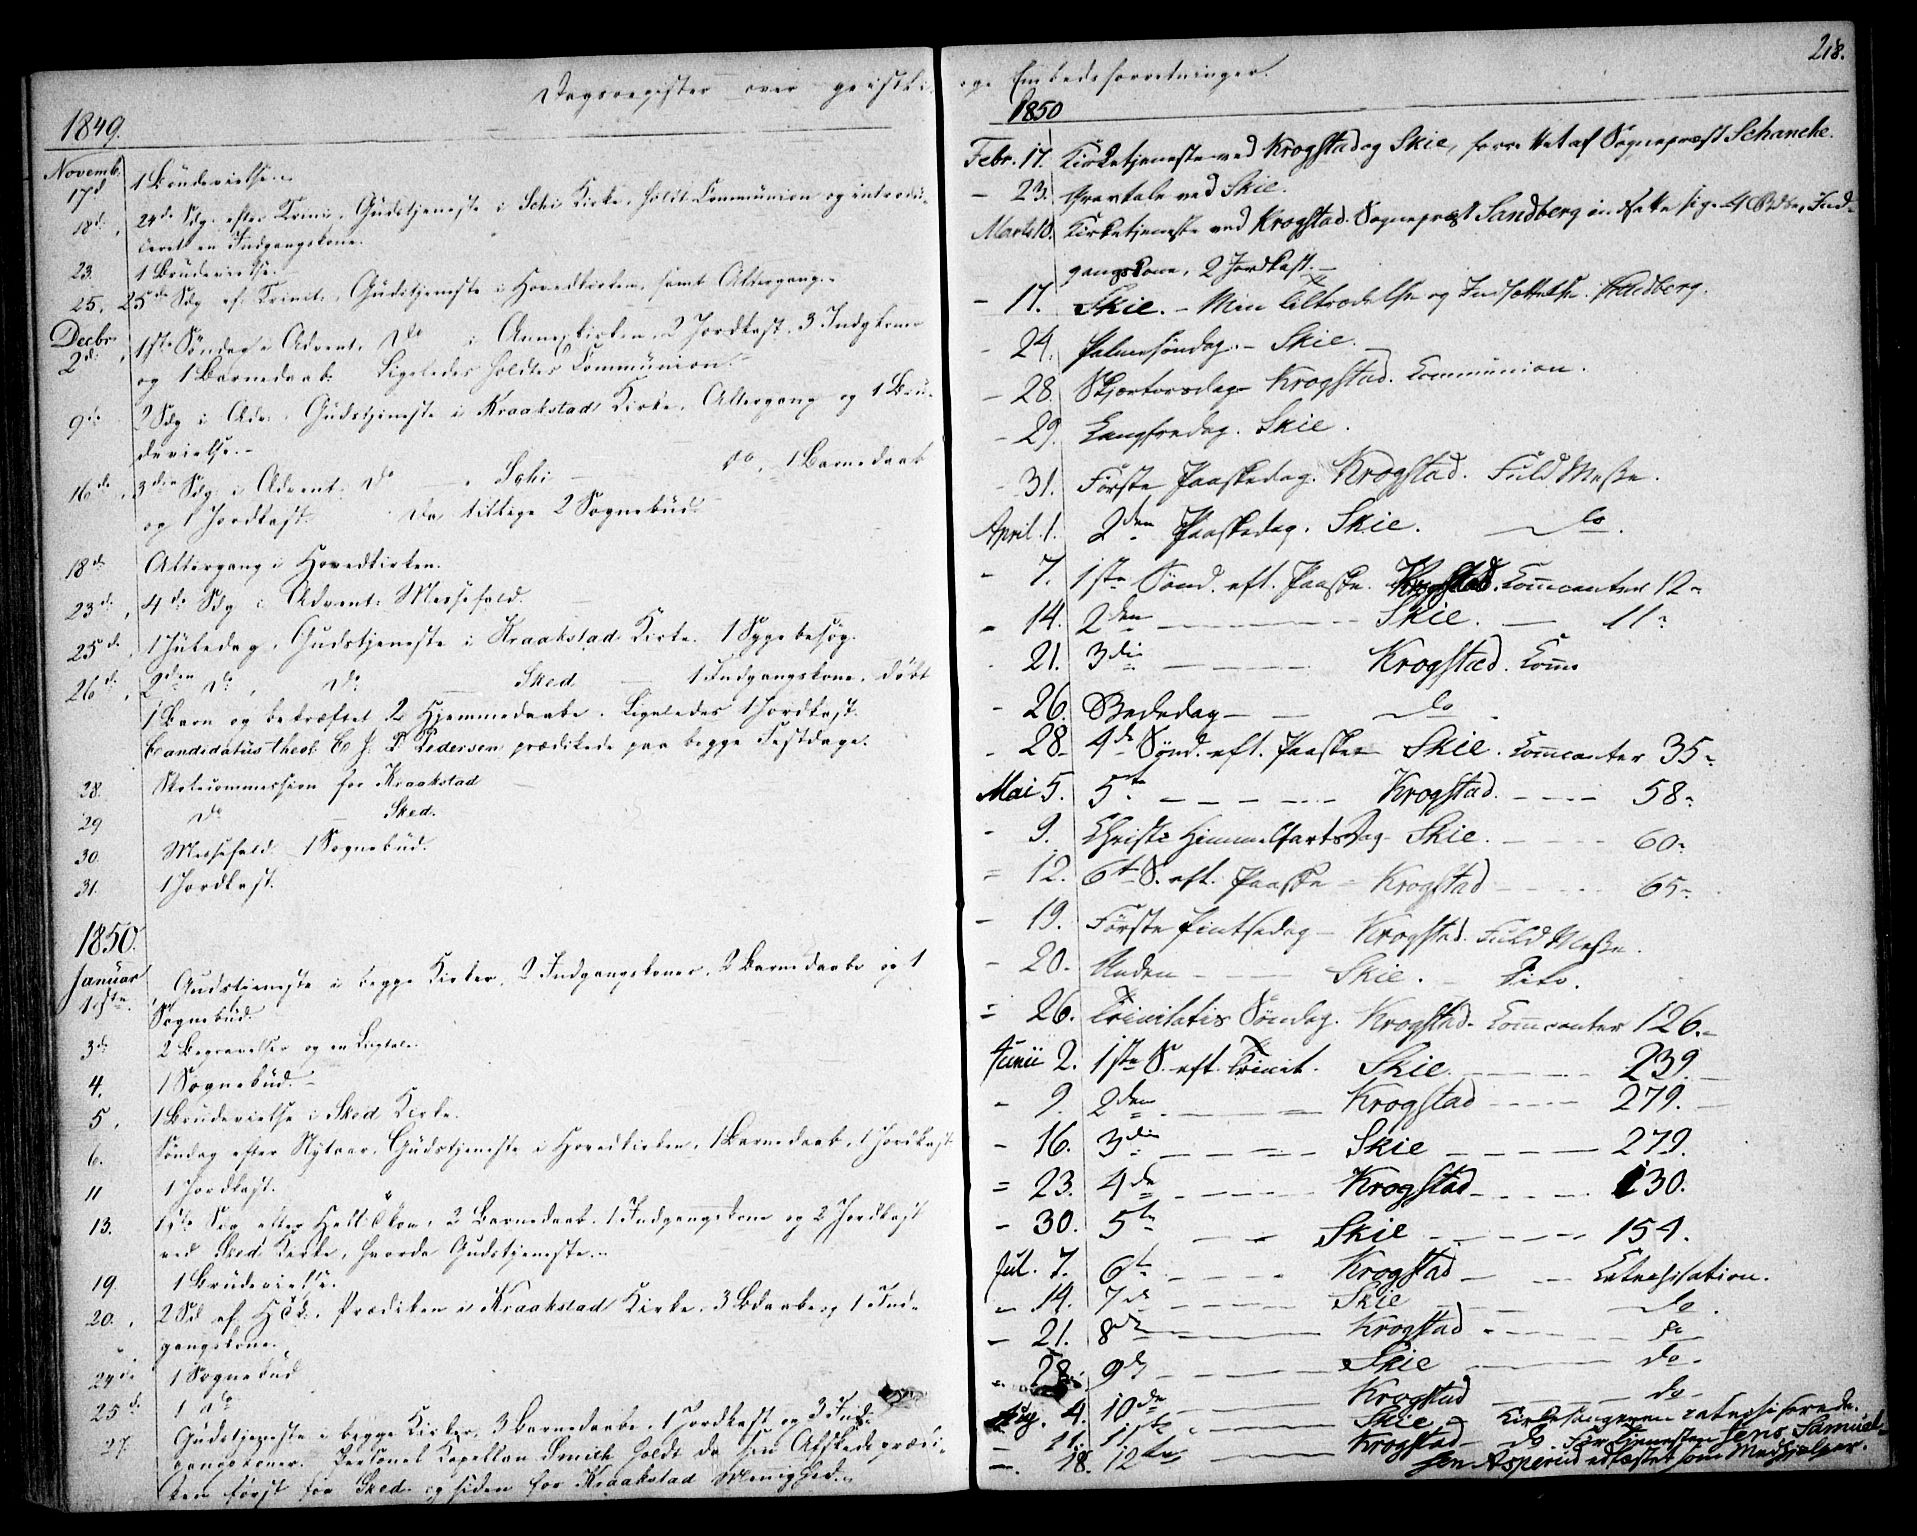 Dagsregister over geistlige Embedsforretninger.
218.
1849.
Novemb.
17d 1 Brudevielse.
18d. 24de Sdg. efter Trini. Gudstjeneste i Schi Kirke, holdt Communion og introdu-
ceret en Indgangskone.
23. 1 Brudevielse.
25. 25de Sdg ef. Trinit. Gudstjeneste i Hovedkirken, samt Altergang.
Decbr.
2d. 1ste Søndag i Advent. Do i Annexkirken. 2 Jordkast. 3 Indgkoner
og 1 Barnedaab. Ligeledes holdtes Communion.
9de 2 Sdg i Adv. Gudstjeneste i Kraakstad Kirke. Altergang og 1 Bru-
devielse.
16de. 3die Sdg i Advent. Do Schi do. 1 Barnedaab
og 1 Jordkast. tillige 2 Sognebud.
18d. Altergang i Hovedkirken.
23d. 4de Sdg i Advent. Messefald.
25d. 1 Juledag. Gudstjeneste i Kraakstad Kirke. 1 Sygebesøg.
26d. 2den Do, Do Sked 1 Indgangskone. døbt
1 Barn og bekræftet 2 Hjemmedaabe. Ligeledes 1 Jordkast.
Candidatus theol. Pedersen prædikede paa begge Festdage.
28. Skolecommission for Kraakstad
29 Do Sked.
30. Messefald. 1 Sognebud.
31. 1 Jordkast.
1850.
Januar
1ste. Gudstjeneste i begge Kirker. 2 Indgangskoner. 2 Barnedaabe og 1
Sognebud.
3d 2 Begravelser og en Ligtale.
4. 1 Sognebud.
5. 1 Brudevielse i Sked Kirke.
6. Søndag efter Nytaar. Gudstjeneste i Hovedkirken, 1 Barnedaab. 1 Jordkast
11 1 Jordkast.
13. 1ste Sdg efter Hell. 3 Kon. 2 Barnedaab. 1 Indgangskone og 2 Jordkast
ved Sked Kirke, hvorda Gudstjeneste.
19. 1 Brudevielse.
20. 2 Sd ef. H3K. Prædiken i Kraakstad Kirke. 3 Bdaab og 1 Ind-
gangskone.
24de 1 Sognebud
25d. 1 do
27. Gudstjeneste i begge Kirker, 3 Barnedaabe. 1 Jordkast og 3 Ind-
gangskoner. Personel Kapellan Smith holdt da sin Afskedsprædi-
ken først for Sked og siden for Kraakstad Menighed.
1850
Febr. 17. Kirketjeneste ved Krogstad og Skie, forrettet af Sognepræst Schanche.
- 23. ved Skie.
Marts 10. Kirketjeneste ved Krogstad. Sognepræst Sandberg indsatte sig. 4 Indgangskone, 2 Jordkast.
- 17. Skie. - Min Tiltrædelse og Indsættelse. Sandberg.
- 24. Palmesøndag. - Skie.
- 28. Skjærtorsdag - Krogstad. Communion.
- 29. Langfredag. Skie.
- 31. Første Paaskedag. Krogstad. Fuld Messe.
April. 1. 2den Paaskedag. Skie. Do.
- 7. 1ste Sønd. eft. Paaske. Krogstad. Comcanter 12
- 14. 2den - Skie. - 11
- 21. 3die - Krogstad. Com.
- 26. Bededag - do
- 28. 4de Sønd. eft. Paaske - Skie. Comcanter 35
Mai 5. 5te - Krogstad. - 58
- 9. Christi Himmelfartsdag - Skie. - 60
= 12. 6te S. eft. Paaske - Krogstad - 65
- 19. Første Pintsedag - Krogstad. Fuld Messe.
- 20. Anden - Skie. - Dito.
= 26. Trinitatis Søndag. Krogstad. Comcanter 126.
Junii 2. 1ste S. eft. Trinit. Skie. - 239.
- 9. 2den - Krogstad - 279.
- 16. 3die - Skie - 279.
= 23. 4de - Krogstad - 130.
- 30. 5te - Skie - 154.
Jul. 7. 6te - Krogstad - Catechisation.
- 14. 7de - Skie - do.
- 21. 8de - Krogstad - do
- 28. 9de - Skie - do.
Aug. 4. 10de - Krogstad - do
- 11. 11te - Skie - Kirkesangeren catechiserede.
- 18. 12te - Krogstad - Do. Før Tjenesten Jens Samuel-
sen Asperud edfæstet som Medhjelper.